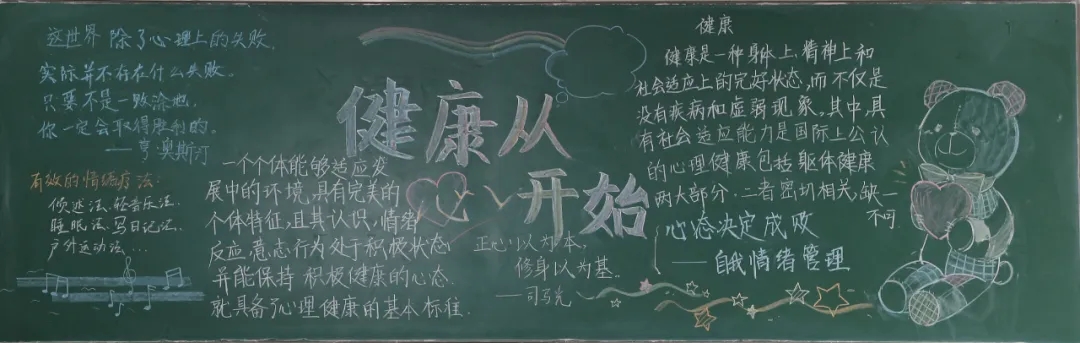 这世界除了心理上的失败，
实际并不存在什么失败。
只要不是一败涂地，
你一定会取得胜利的。
——亨·奥斯汀
有效的情绪疗法：
倾述法、轻音乐法、
睡眠法、写日记法、
户外运动法...
一个个体能够适应发
展中的环境，具有完美的
个体特征，且其认识，情绪
反应，意志行为处于积极状态
并能保持积极健康的心态
就具备了心理健康的基本标准.
健康从
心
开始
正心以为本，
修身以为基。
——司马光
健康
健康是一种身体上、精神上和
社会适应上的完好状态，而不仅是
没有疾病和虚弱现象。其中，具
有社会适应能力是国际上公认
的心理健康包括躯体健康
两大部分，二者密切相关，缺一
不可
心态决定成败
——自我情绪管理